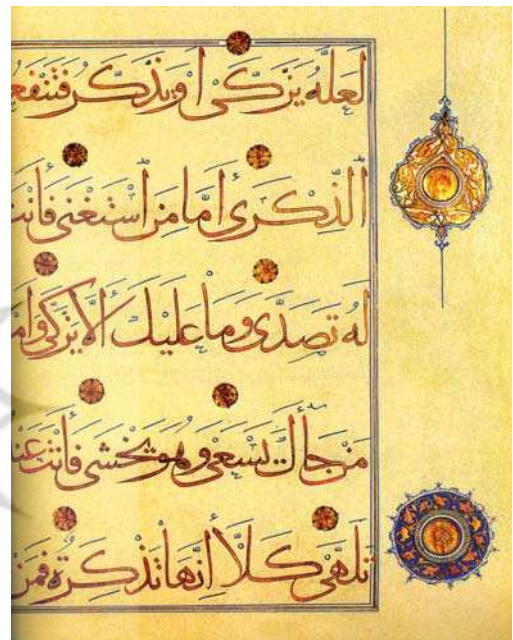 لَعَلَّهُ يَزَّكَّىٰ أَوْ يَذَّكَّرُ فَتَنْفَعَ
الذِّكْرَىٰ أَمَّا مَنِ اسْتَغْنَىٰ فَأَنْتَ
لَهُ تَصَدَّىٰ وَمَا عَلَيْكَ أَلَّا يَزَّكَّىٰ وَأَمَّا
مَنْ جَاءَكَ يَسْعَىٰ وَهُوَ يَخْشَىٰ فَأَنْتَ عَنْهُ
تَلَهَّىٰ كَلَّا إِنَّهَا تَذْكِرَةٌ فَمَنْ